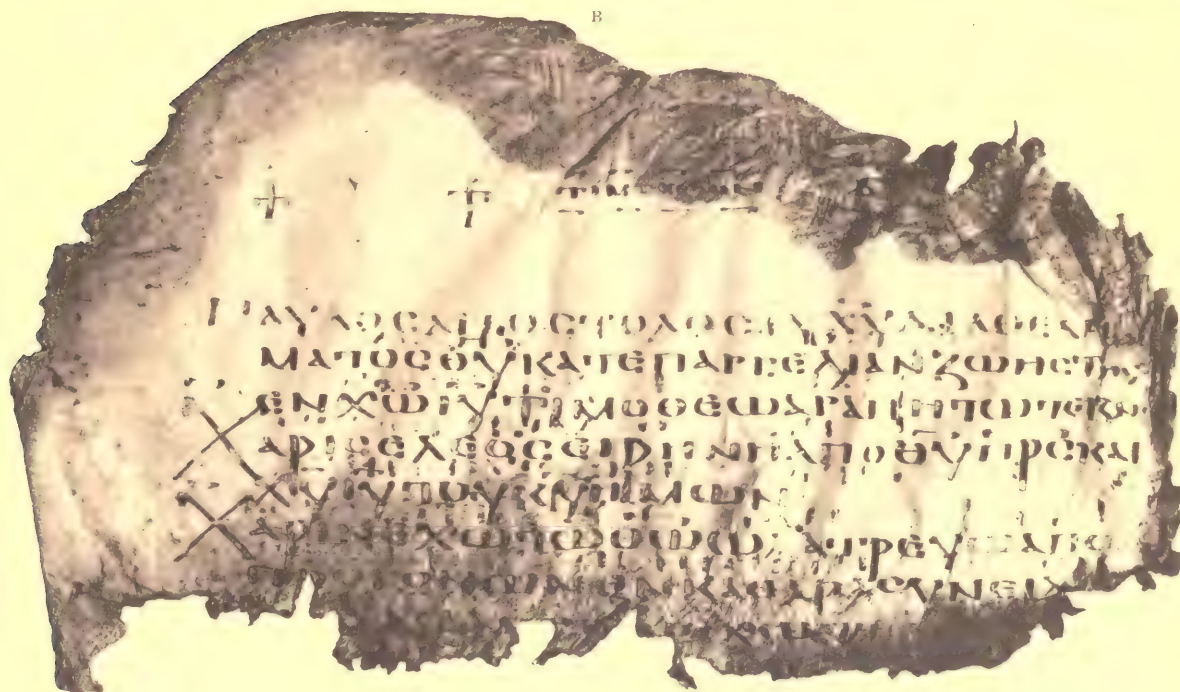 B
ΠΑΥΛΟϹ ΑΠΟϹΤΟΛΟϹ ΧΥ ΔΙΑ ΘΕΛΗ
ΜΑΤΟϹ ΘΥ ΚΑΤ ΕΠΑΓΓΕΛΙΑΝ ΖΩΗϹ ΤΗϹ
ΕΝ ΧΩ ΙΥ ΤΙΜΟΘΕΩ ΑΓΑΠΗΤΩ ΤΕΚΝ
ΑΡΙϹ ΕΛΕΟϹ ΕΙΡΗΝΗ ΑΠΟ ΘΥ ΠΡϹ ΚΑΙ
ΧΥ ΙΥ ΤΟΥ ΚΥ ΗΜΩΝ
ΕΧΩ ΤΩ ΘΩ Ω ΛΑΤΡΕΥΩ ΑΠΟ
ΕΝ ΚΑΘΑΡΑ ϹΥΝΕΙΔ